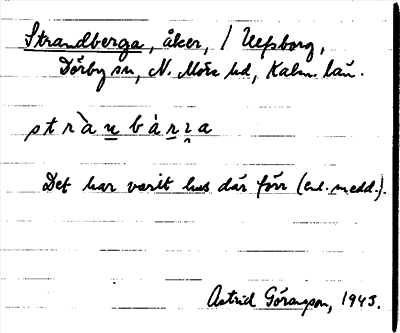 Strandberga, åker, / Ulfsborg,
Dörby sn, N. Möre hd, Kalm. län.
strànbárɿa
Det har varit hus där förr (enl. medd.).
Astrid Göransson, 1943.